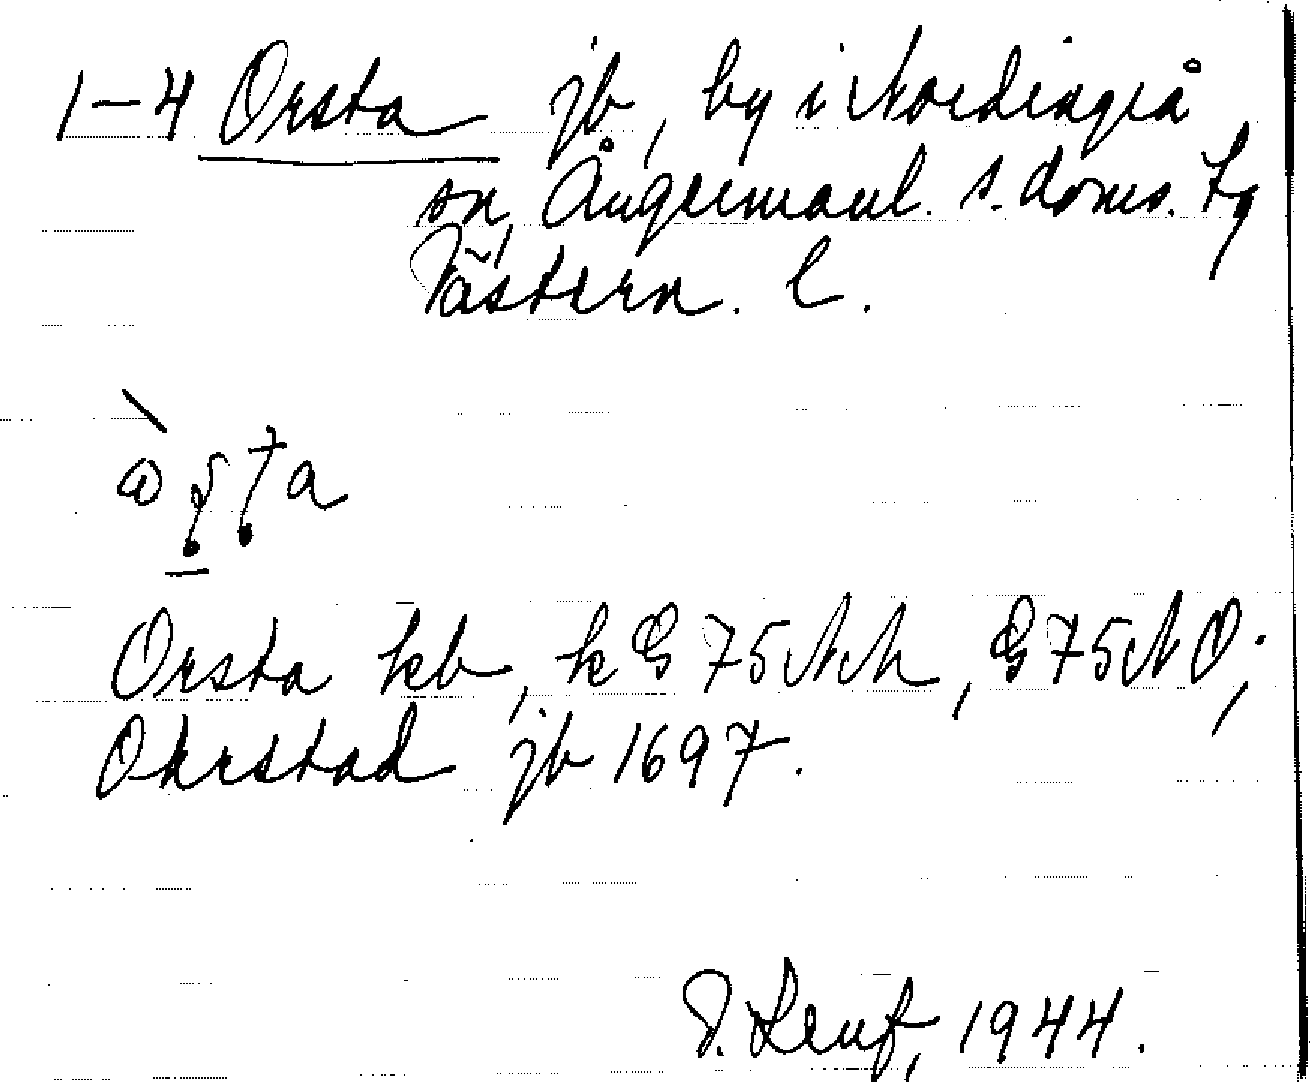 1-4 Orsta jb, by i Nordingrå
sn, Ångermanl. s. doms. tg
Västern. l.
Orsta kb, k G 75 NM, G 75 NO;
Ohrstad jb 1697.
1944.